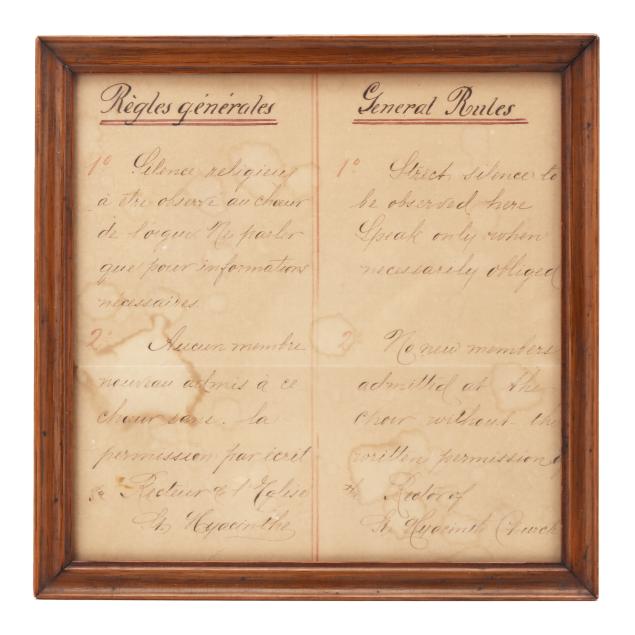 Règles générales
1º Silence religieux
à être observé au chœur
de l'orgue Ne parler
que pour informations
nécessaires.
2º Aucun membre
nouveau admis à ce
chœur sans la
permission par écrit
Recteur de l'Eglise
St Hyacinthe
General Rules
1º Strect silence to
be observed here
Speak only when
necessarily obliged
2 No new members
admitted at the
choir without the
written permission of
Rector of
St Hyacinth Church